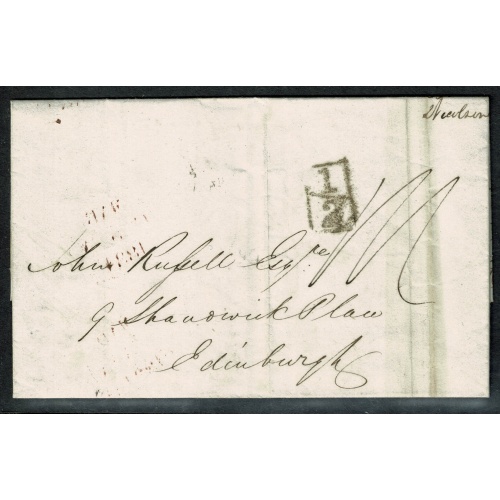 Nicolson
1/2
John Russell Esqre
9 Shandwick Place
Edinburgh